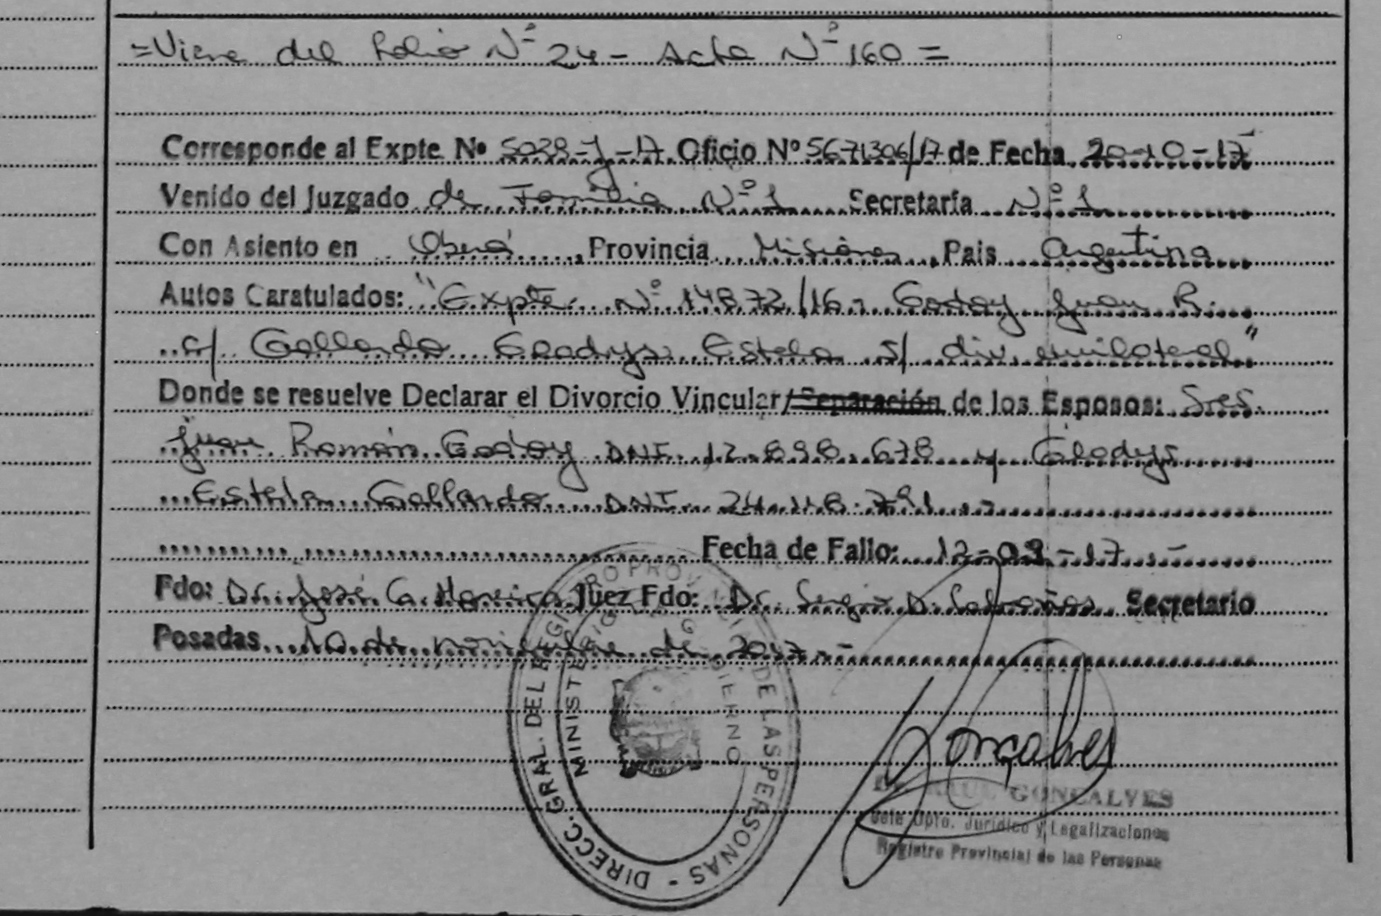 =Viene del Folio Nº 24 - Acta Nº 160 =
Corresponde al Expte Nº 5028-J-17 Oficio Nº 5671306/17 de Fecha 20-10-17
Venido del Juzgado de Familia Nº 1 Secretaría Nº 1
Con Asiento en Oberá, Provincia Misiones, Pais Argentina
Autos Caratulados: "Expte. Nº 14872/16 - Godoy Juan R.
c/ Gallardo Gladys Estela s/ div. unilateral"
Donde se resuelve Declarar el Divorcio Vincular/Separación de los Esposos: Sres.
Juan Ramón Godoy DNI 12.898.678 y Gladys
Estela Gallardo DNI 24.118.791.-
Fecha de Fallo: 12-09-17.-
Fdo: Dr. José G. Moreira Juez Fdo: Dr. Sergio D. Secretario
Posadas 10 de noviembre de 2017.-
DIRECC. GRAL. DEL REGISTRO PROVINCIAL DE LAS PERSONAS -
MINISTERIO GOBIERNO
Gonçalves
Dr. RAUL GONCALVES
Jefe Dpto. Jurídico y Legalizaciones
Registro Provincial de las Personas